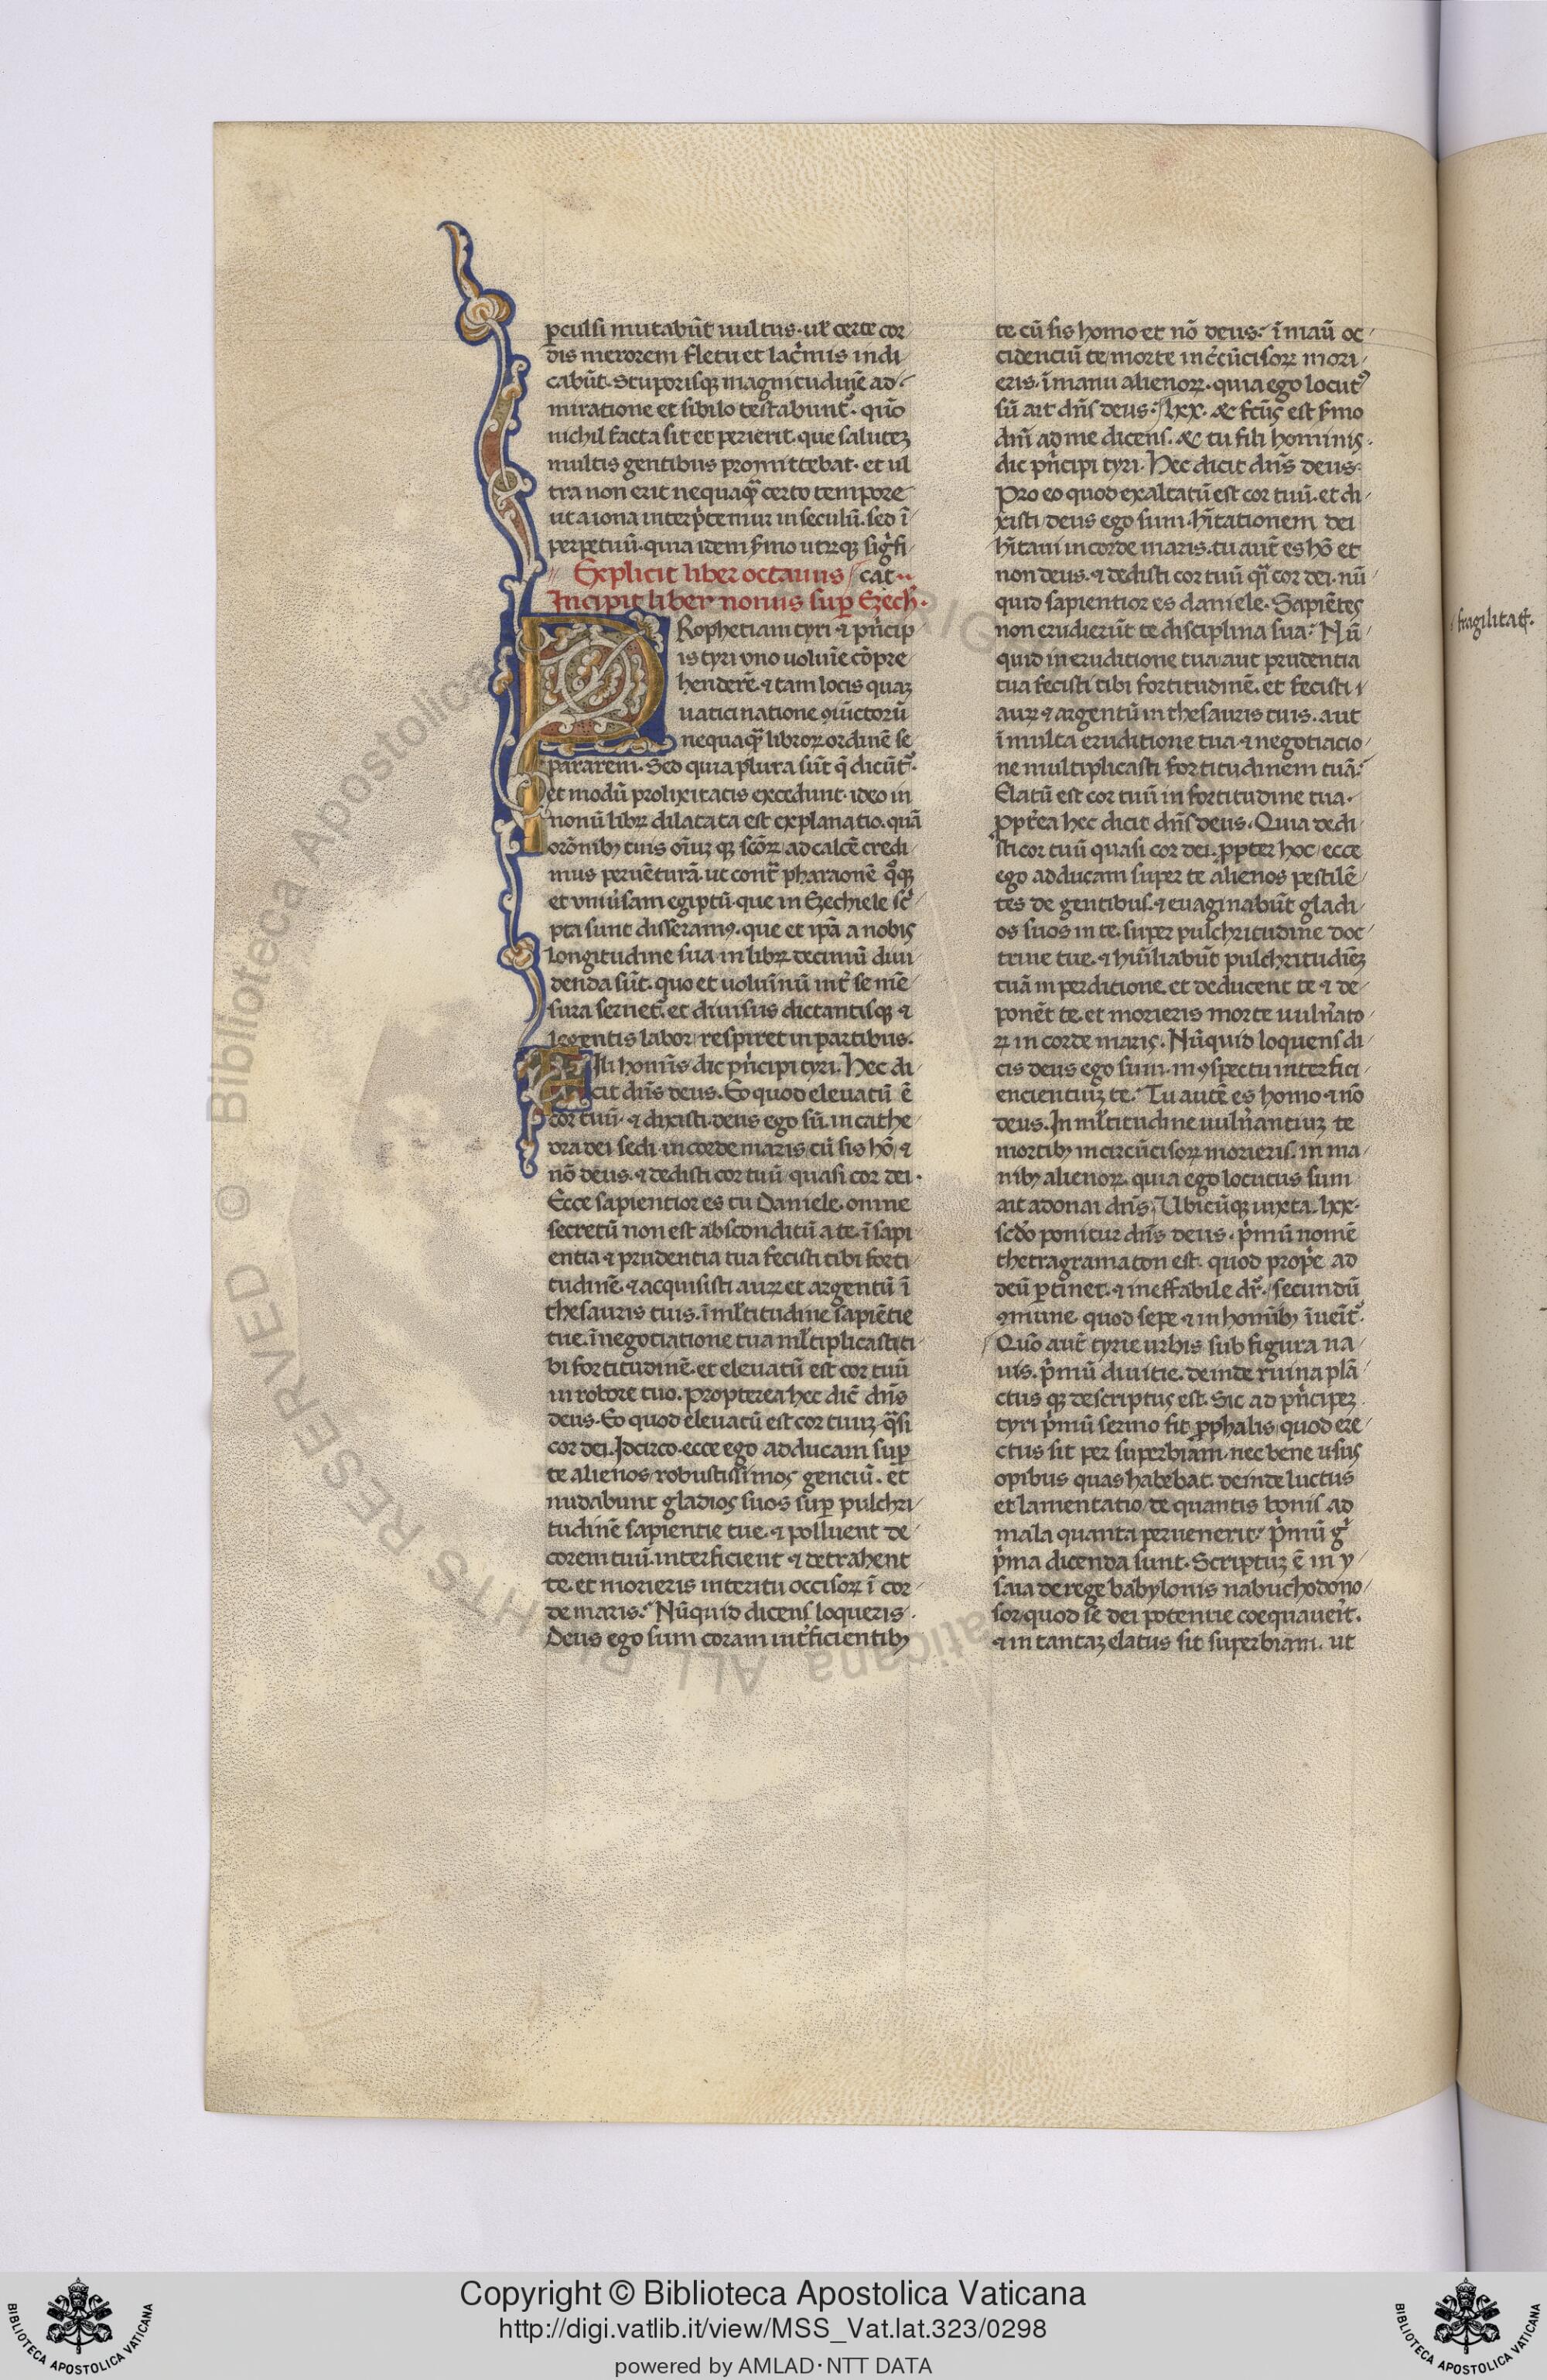 ꝑculsi mutabūt uultus· uꝉ certe cor
dis merorem fletu et lac̓mis indi
cabūt. Stuporisqꝫ magnitudinē ad
miratione et sibilo testabunt᷑. quō
nichil facta sit et perierit. que salutez
multis gentibus promittebat. et ul
tra non erit nequaqᷓ certo tempore
ut a iona interp̓temur in seculū. sed ī
perpetuū. quia idem s̓mo utrūqꝫ sig̓fi
Explicit liber octauus / cat··
Incipit liber nonus suꝑ Ezech̄.
PRophetiam tyri ⁊ pn̓cip
is tyri uno uolumīe cōpre
henderē. ⁊ tam locis quaꝫ
uaticinatione ꝯiūctorū
nequaqᷓ libroꝝ ordinē se
pararem. Sed quia plura sūt q̄ dicūt᷑.
et modū prolixitatis excedunt. ideo in
nonū libꝝ dilatata est explanatio. quā
orōnibꝫ tuis oīuꝫ qꝫ scōꝝ ad calcē credi
mus peruēturā. ut contᷓ pharaonē qͦqꝫ
et uniu̓sam egiptū que in Ezechiele sc̓
pta sunt disseramꝰ. que et ip̄a a nobis
longitudine sua in libꝝ decimū diui
denda sūt. quo et uoluīnū int̓ se mē
sura seruet᷑. et diuisus dictantisqꝫ ⁊
legentis labor respiret in partibus.
Fili homīs dic pn̓cipi tyri. Hec di
cit dn̄s deus. Eo quod eleuatū ē
cor tuū. ⁊ dixisti. deus ego sū. in cathe
dra dei sedi. in corde maris cū sis hō ⁊
nō deus. ⁊ dedisti cor tuū quasi cor dei.
Ecce sapientior es tu Daniele. omne
secretū non est absconditū a te. ī sapi
entia ⁊ prudentia tua fecisti tibi forti
tudinē. ⁊ acquisisti auꝝ et argentū ī
thesauris tuis. ī mꝉtitudine sapiētie
tue. ī negotiatione tua mꝉtiplicasti ti
bi fortitudinē. et eleuatū est cor tuū
in robore tuo. Propterea hec dic̄ dn̄s
deus. Eo quod eleuatū est cor tuuꝫ qᷓsi
cor dei. Idcirco. ecce ego adducam suꝑ
te alienos robustissimos gentiū. et
nudabunt gladios suos suꝑ pulchri
tudinē sapientie tue. ⁊ polluent de
corem tuū. interficient ⁊ detrahent
te. et morieris interitu occisoꝝ ī cor
de maris. Nūquid dicens loqueris.
Deus ego sum coram int̓ficientibꝫ
te cū sis homo et nō deus. ī manū oc
cidenciū te morte inc̓cūcisoꝝ mori
eris. ī manu alienoꝝ. quia ego locutꝰ
sū ait dn̄s deus. lxx. ⁊ fc̄us est s̓mo
dn̄i ad me dicens. ⁊ tu fili hominis.
dic pn̓cipi tyri. Hec dicit dn̄s deus.
Pro eo quod exaltatū est cor tuū. et di
xisti deus ego sum. hītationem dei
hītaui in corde maris. tu aut̄ es hō et
non deus. ⁊ dedisti cor tuū qᷓi cor dei. nū
quid sapientior es daniele. Sapiētes
non erudierūt te disciplina sua. Nū
quid in eruditione tua aut prudentia
tua fecisti tibi fortitudinē. et fecisti
auꝝ ⁊ argentū in thesauris tuis. aut
ī multa eruditione tua ⁊ negotiacio
ne multiplicasti fortitudinem tuā.
Elatū est cor tuū in fortitudine tua.
Ppt̓ea hec dicit dn̄s deus. Quia dedi
sti cor tuū quasi cor dei. ꝓpter hoc ecce
ego adducam super te alienos pestilē
tes de gentibus. ⁊ euaginabūt gladi
os suos in te. super pulchritudine doc
trine tue. ⁊ humiliabūt pulchritudīeꝫ
tuā in perditione. et deducent te ⁊ de
ponēt te. et morieris morte uuln̓ato
ꝝ in corde maris. Nūquid loquens di
cis deus ego sum. in ꝯspectu interfici
encientiuꝫ te. Tu autē es homo ⁊ nō
deus. In mꝉtitudine uuln̓antiuꝫ te
mortibꝫ incircūcisoꝝ morieris. in ma
nibꝫ alienoꝝ. quia ego locutus sum
ait adonai dn̄s. Ubicūqꝫ iuxta. lxx.
scd̓o ponitur dn̄s deus. p̓mū nomē
thetragramaton est. quod prop̓e ad
deū ꝑtinet. ⁊ ineffabile dr̄. secundū
ꝯmune quod sepe ⁊ in homībꝫ īueīt᷑.
Quō aut̄ tyrie urbis sub figura na
uis. p̓mū diuitie. deinde ruina plā
ctus qꝫ descriptus est. Sic ad pn̓cipeꝫ
tyri p̓mū sermo fit ꝓphalis quod ere
ctus sit per superbiam. nec bene usus
opibus quas habebat. deinde luctus
et lamentatio de quantis bonis ad
mala quanta peruenerit. p̓mū g̓
p̓ma dicenda sunt. Scriptuꝫ ē in y
saia de rege babylonis nabuchodono
sor. quod se dei potentie coequauer̄t.
⁊ in tantaꝫ elatus sit superbiam. ut
fragilitat᷑.
© Biblioteca Apostolica Vaticana ALL RIGHTS RESERVED
Copyright © Biblioteca Apostolica Vaticana
http://digi.vatlib.it/view/MSS_Vat.lat.323/0298
powered by AMLAD·NTT DATA
BIBLIOTECA APOSTOLICA VATICANA
BIBLIOTECA APOSTOLICA VATICANA